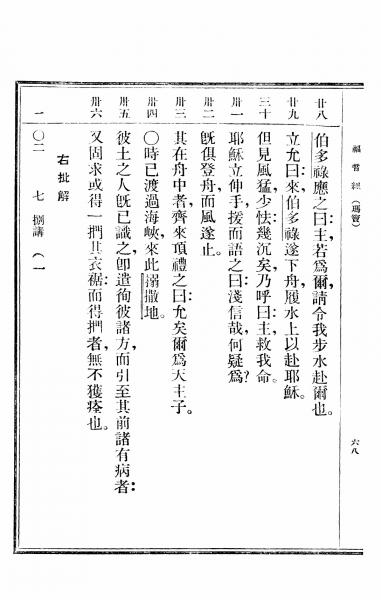 福音經（瑪竇）
六八
廿八 伯多祿應之曰：主，若爲爾，請令我步水赴爾也。
廿九 立允曰：來，伯多祿遂下舟，履水上以赴耶穌。
三十 但見風猛，少怯幾沉矣，乃呼曰：主救我命。
卅一 耶穌立伸手，援而語之曰：淺信哉，何疑爲？
卅二 既俱登舟，而風遂止。
卅三 其在舟中者，齊來頂禮之曰：允矣爾爲天主子。
卅四 〇時已渡過海峽，來此溺撒地。
卅五 彼土之人既已識之，卽遣徇彼諸方，而引至其前諸有病者：
卅六 又固求或得一捫其衣裾：而得捫者，無不獲痊也。
右批解
一〇二 七 捌講（一